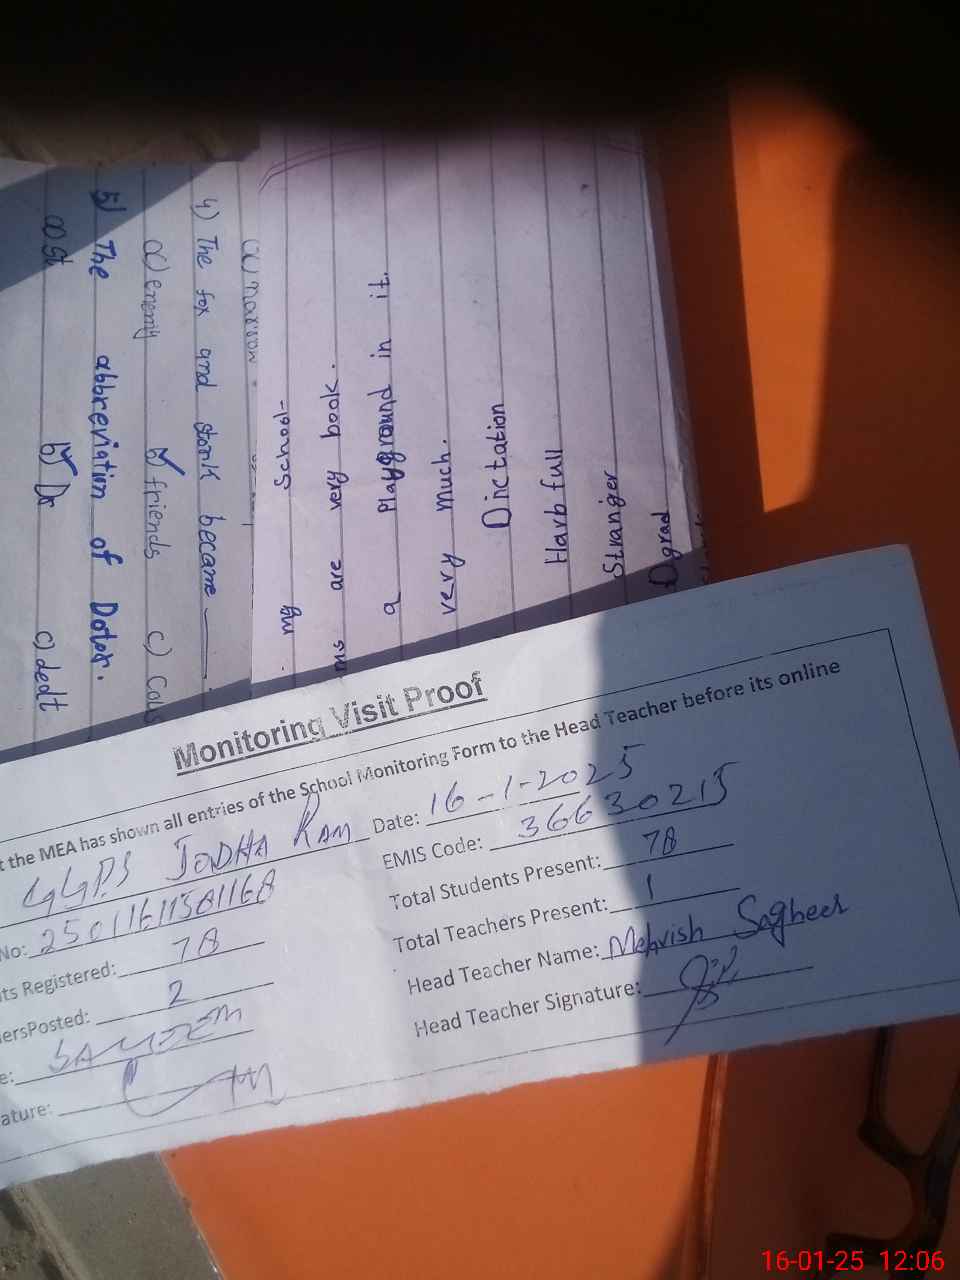 (a) narrow.
4) The fox and stork became
a) enemy b) friends c)
5) The abbreviation of Dotor.
a) St b) Dr c) dedt
my School-
ms are very book.
a Playground in it.
very much.
Dictation
Harbfull
Stranger
Dgrad
Monitoring Visit Proof
t the MEA has shown all entries of the School Monitoring Form to the Head Teacher before its online
GGPS JODHA RAM Date: 16-1-2025
No: EMIS Code: 36630215
ts Registered: 78 Total Students Present: 78
ersPosted: 2 Total Teachers Present: 1
e: SALEEM Head Teacher Name: Mehvish Sagheer
ature: Head Teacher Signature:
16-01-25 12:06